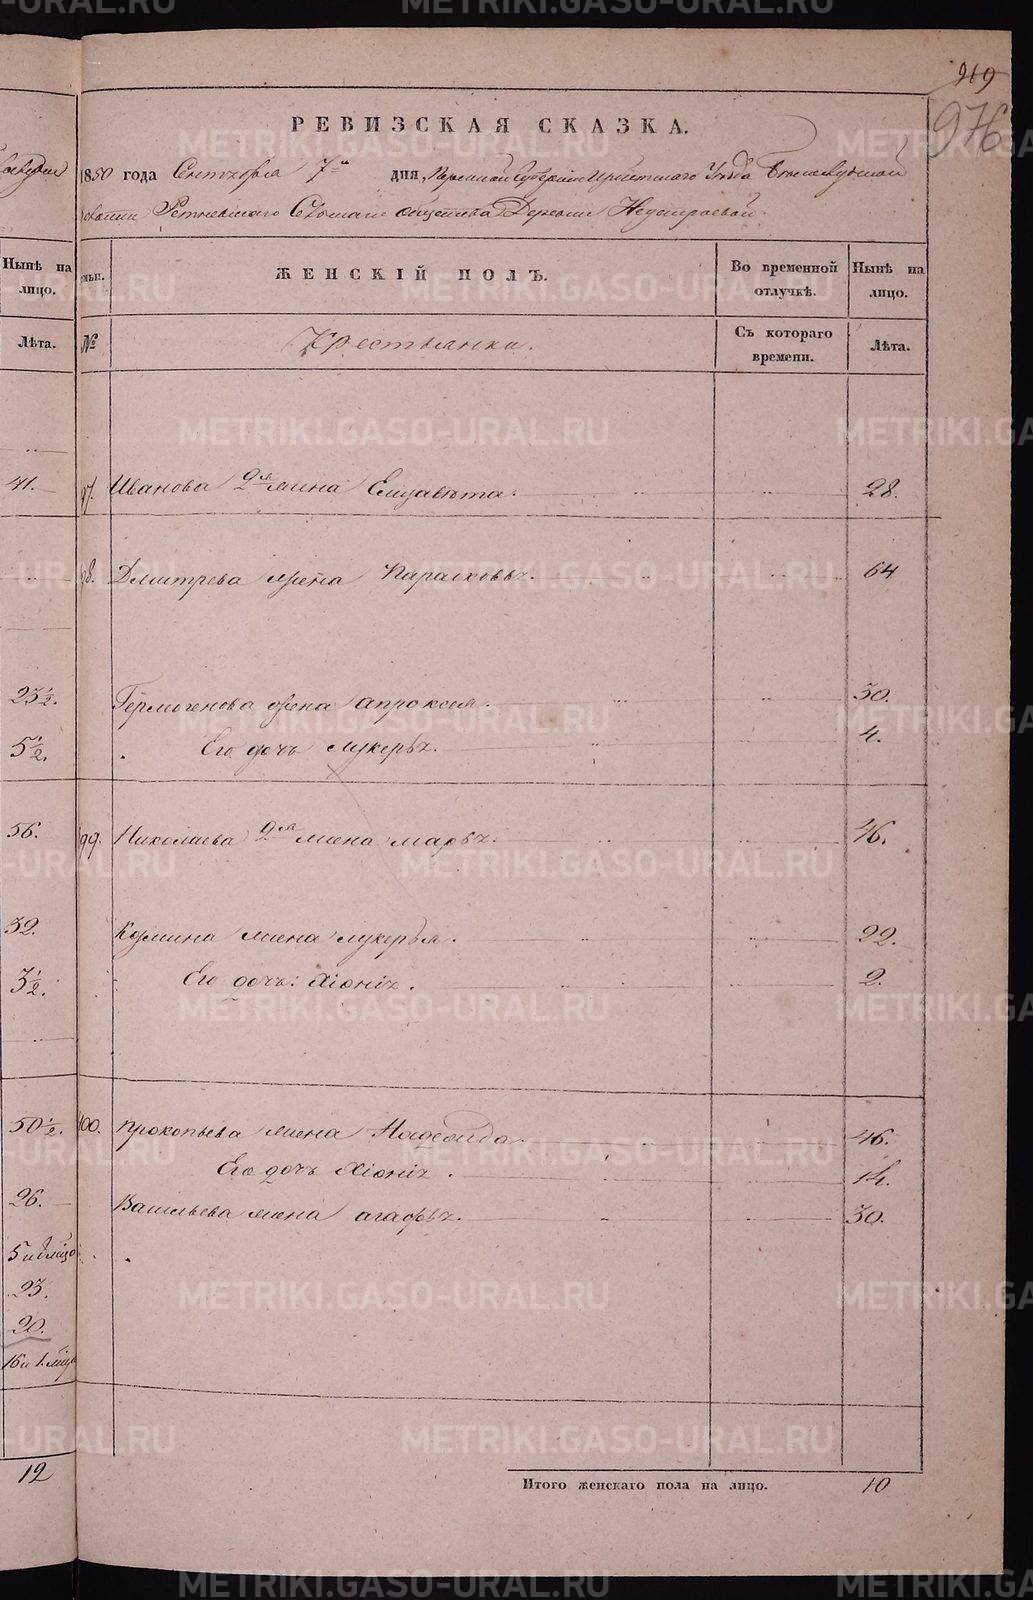 269
976
РЕВИЗСКАЯ СКАЗКА.
1850 года Сентября 7го дня, Пермской Губернии Ирбитского Уезда
Сельского общества Деревни Неустроевой.
Нынѣ на лицо.
ЖЕНСКІЙ ПОЛЪ.
Во временной отлучкѣ.
Нынѣ на лицо.
Лѣта.
№
Крестьянки.
Съ котораго времени.
Лѣта.
41. 97. Иванова 2я жена Елизавѣта. 28.
98. Дмитрева жена Парасковья. 64
23½. Гермогенова жена Апроксия. 30.
5½. Его дочь Лукерья. 4.
56. 99. Николаева 2я жена Марья. 46.
32. Козмина жена Лукерья. 22.
3½. Его дочь Хіонія. 2.
50½. 100. Прокопьева жена Надежда. 46.
Его дочь Хіонія. 14.
26. Васильева жена Агафья. 30.
23.
20.
12
Итого женскаго пола на лицо. 10
METRIKI.GASO-URAL.RU